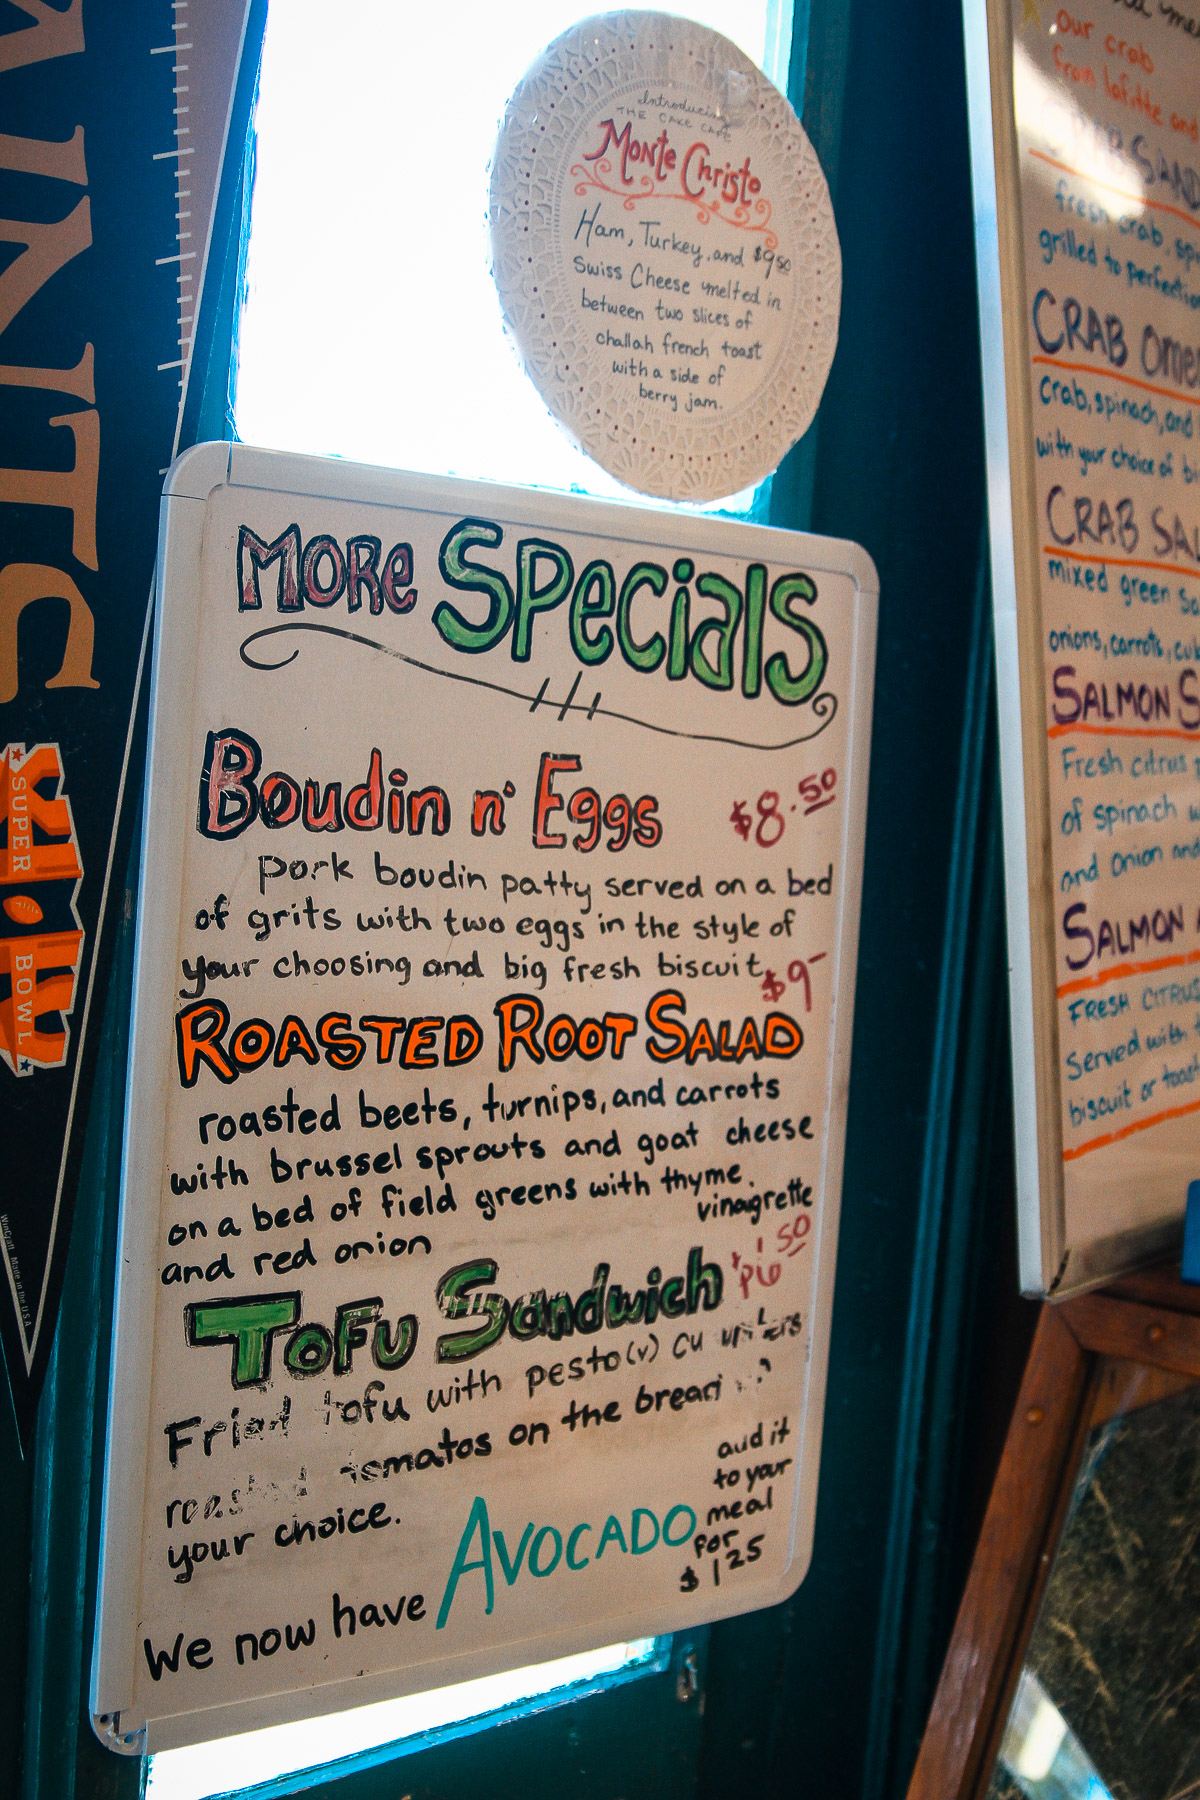 Introducing
THE CAKE CAFE
Monte Christo
Ham, Turkey, and $9.50
Swiss Cheese melted in
between two slices of
challah french toast
with a side of
berry jam.
MORE SPecials
Boudin n' Eggs $8.50
pork boudin patty served on a bed
of grits with two eggs in the style of
your choosing and big fresh biscuit.
$9-
ROASTED ROOT SALAD
roasted beets, turnips, and carrots
with brussel sprouts and goat cheese
on a bed of field greens with thyme.
vinagrette
and red onion
TOFU Sandwich
Fried tofu with pesto (v)
roasted tomatos on the bread
your choice.
We now have AVOCADO
add it
to your
meal
for
$1 25
our crab
from lafitte and
fresh crab,
grilled to perfection
CRAB
crab, spinach, and
with your choice of
CRAB
mixed green
onions, carrots,
SALMON
Fresh citrus
of spinach
and onion and
SALMON
FRESH CITRUS
Served with
biscuit or toast
SUPER
BOWL
WinCraft Made in the U.S.A.